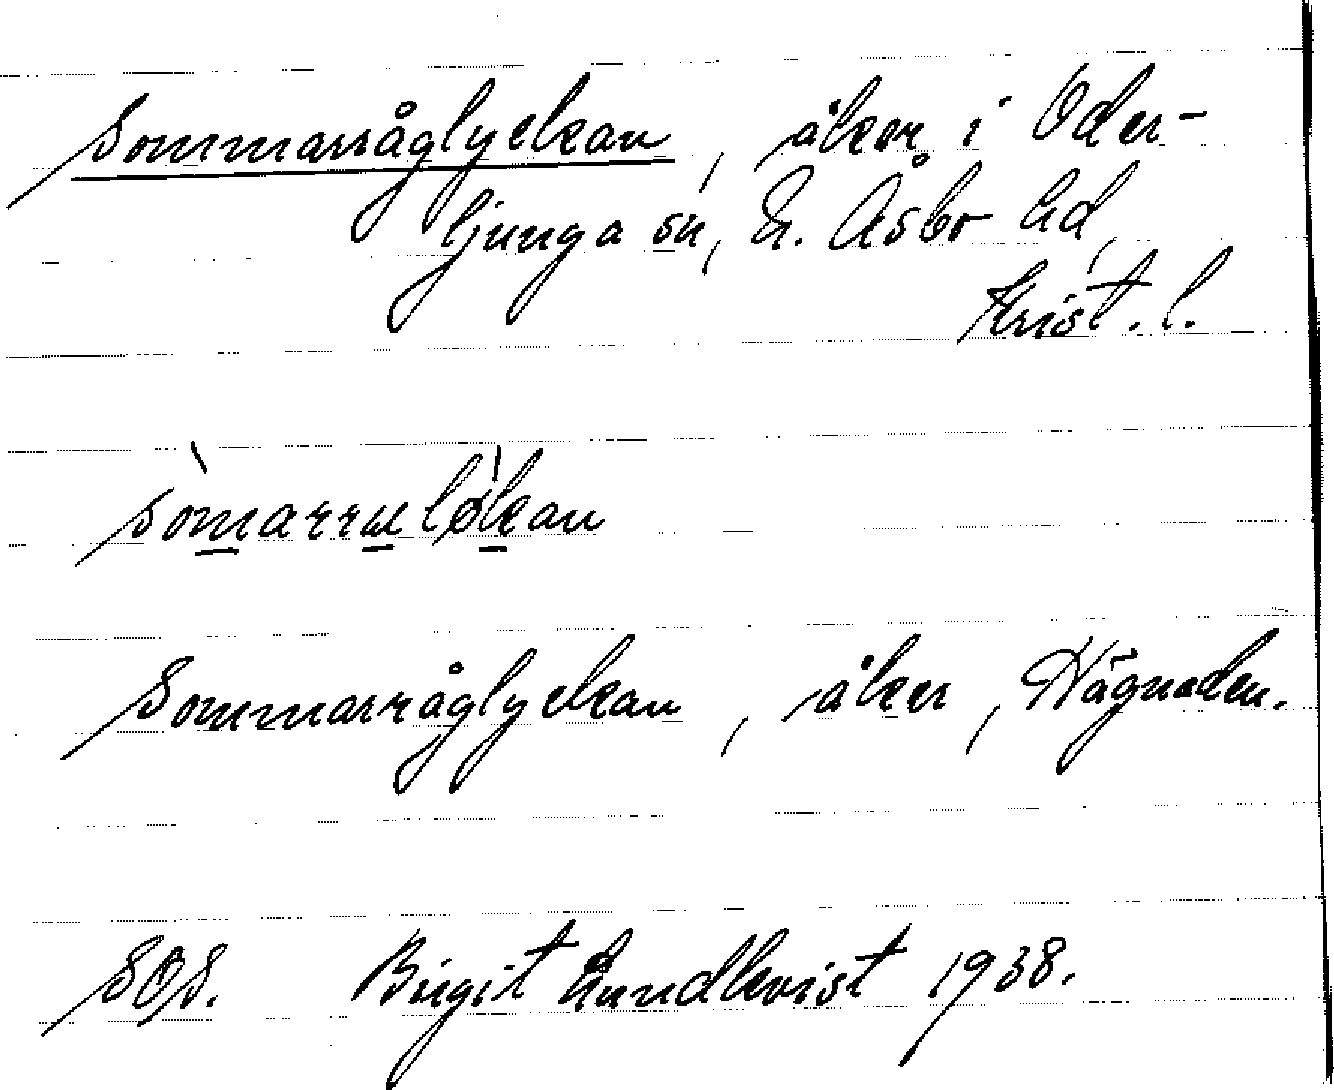 Sommarråglyckan, åker i Oder-
ljunga sn, N. Åsbo hd,
Krist. l.
Sommarråglyckan, åker, Hägnaden.
SOS. Birgit Lundkvist 1938.